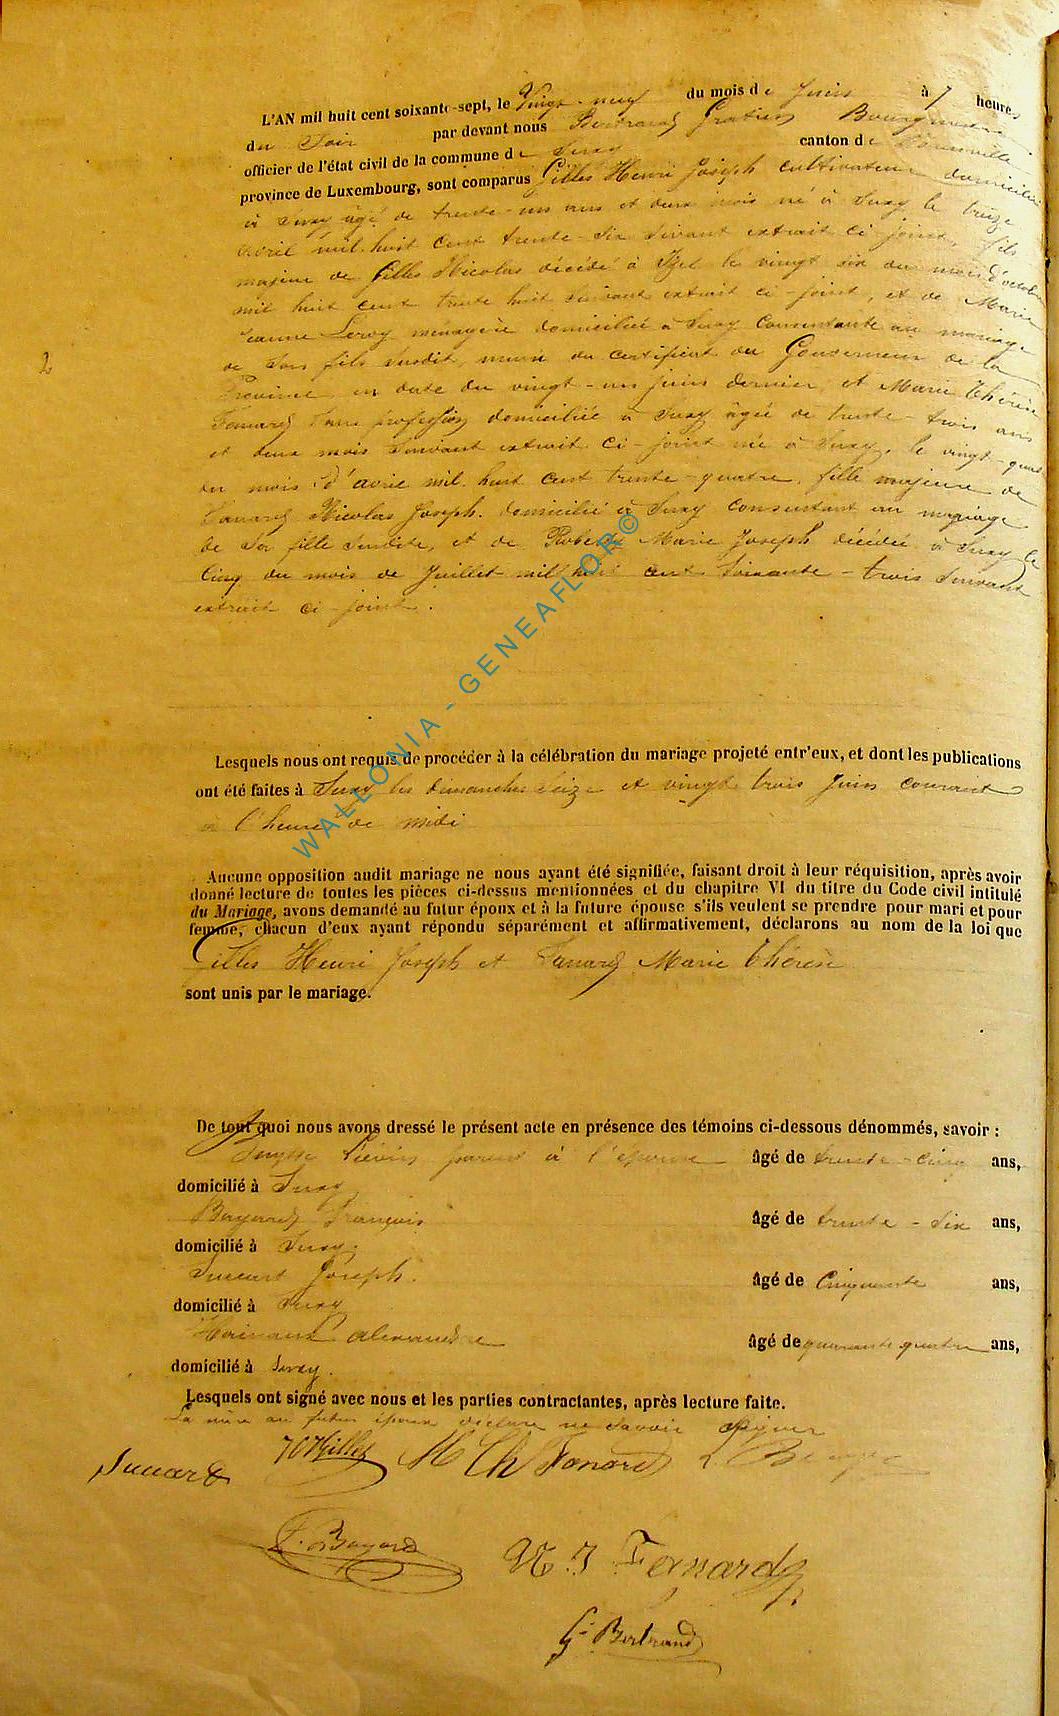 L'AN mil huit cent soixante-sept, le Vingt-neuf du mois de Juin à 7 heures
du Soir par devant nous Bertrand Gratien Bourgmestre
officier de l'état civil de la commune de Suxy canton de
province de Luxembourg, sont comparus Gilles Henri Joseph cultivateur domicilié
à Suxy âgé de trente-un ans et deux mois né à Suxy le treize
avril mil huit cent trente-six suivant extrait ci joint, fils
majeur de Gilles Nicolas décédé à Izel le vingt six du mois d'octobre
mil huit cent trente huit suivant extrait ci-joint, et de Marie
Jeanne Leroy ménagère domiciliée à Suxy consentante au mariage
de Son fils susdit, muni du certificat du Gouverneur de la
Province en date du vingt-un juin dernier, et Marie Thérèse
Fanard Sans profession domiciliée à Suxy âgée de trente-trois ans
et deux mois Suivant extrait ci-joint née à Suxy, le vingt-quatre
du mois d'avril mil huit cent trente-quatre, fille majeure de
Fanard Nicolas Joseph domicilié à Suxy consentant au mariage
de Sa fille Susdite, et de Marie Joseph décédée à Suxy le
Cinq du mois de Juillet mil huit cent Soixante-trois Suivant
extrait ci-joint.
WALLONIA - GENEAFLOR©
2
Lesquels nous ont requis de procéder à la célébration du mariage projeté entr'eux, et dont les publications
ont été faites à Suxy les dimanches Seize et vingt trois Juin courant
à l'heure de midi
Aucune opposition audit mariage ne nous ayant été signifiée, faisant droit à leur réquisition, après avoir
donné lecture de toutes les pièces ci-dessus mentionnées et du chapitre VI du titre du Code civil intitulé
du Mariage, avons demandé au futur époux et à la future épouse s'ils veulent se prendre pour mari et pour
femme, chacun d'eux ayant répondu séparément et affirmativement, déclarons au nom de la loi que
Gilles Henri Joseph et Fanard Marie Thérèse
sont unis par le mariage.
De tout quoi nous avons dressé le présent acte en présence des témoins ci-dessous dénommés, savoir :
parent à l'épouse âgé de trente-cinq ans,
domicilié à Suxy
Bayard François âgé de trente-six ans,
domicilié à Suxy
Joseph. âgé de Cinquante ans,
domicilié à Suxy
Hainaux alexandre âgé de quarante quatre ans,
domicilié à Suxy.
Lesquels ont signé avec nous et les parties contractantes, après lecture faite.
La mère du futur époux déclare ne Savoir Signer
HJGilles M Th Fanard
F. Bayard N. J Fanard
G. Bertrand